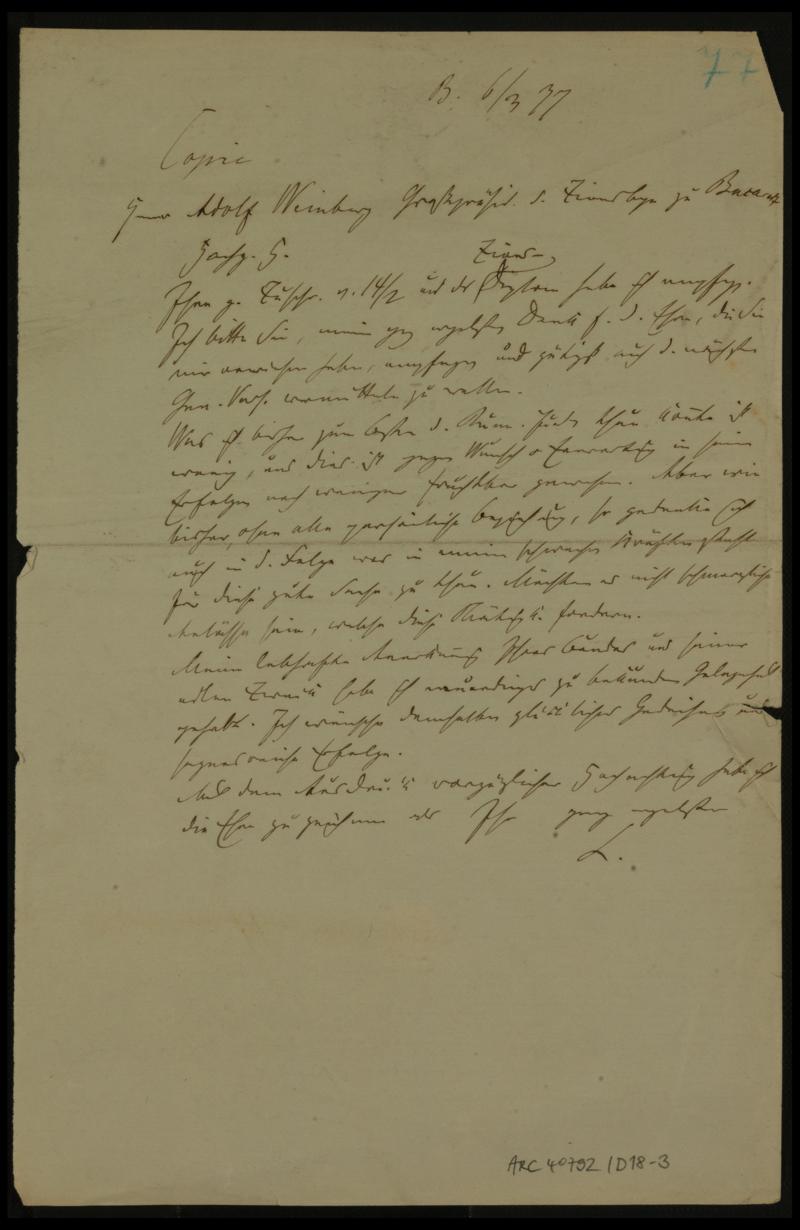 77
B. 6/3 77
Copie
Herrn Adolf Weinberg Großpräsid. d. Zionsloge zu Bucarest
Hochg. H.
Zions-
Ihre g. Zuschr. v. 14/2 und das Diplom habe ich empfgg.
Ich bitte Sie, meinen ganz ergebensten Dank f. d. Ehre, die Sie
mir erwiesen haben, empfangen und gütigst auch d. nächsten
Gen. Vers. vermitteln zu wollen.
Was ich bisher zum Besten d. Rum. Juden thun konnte ist
wenig, und dies ist gegen Wunsch u Erwartung in seinen
Erfolgen noch weniger fruchtbar gewesen. Aber wie
bisher, ohne alle persönliche Beziehung, so gedenke ich
auch in d. Folge was in meinen schwachen Kräften steht
für diese gute Sache zu thun. Möchten es nicht schmerzliche
Anlässe sein, welche diese Thätigk. fordern.
Meine lebhafte Anerkennung Ihres Bundes und seiner
edlen Zwecke habe ich neuerdings zu bekunden Gelegenheit
gehabt. Ich wünsche demselben glückliches Gedeihen und
segensreiche Erfolge.
Mit dem Ausdruck vorzüglicher Hochachtung habe ich
die Ehre zu zeichnen als Ihr ganz ergebenster
L.
ARC 4° 792 / D18-3